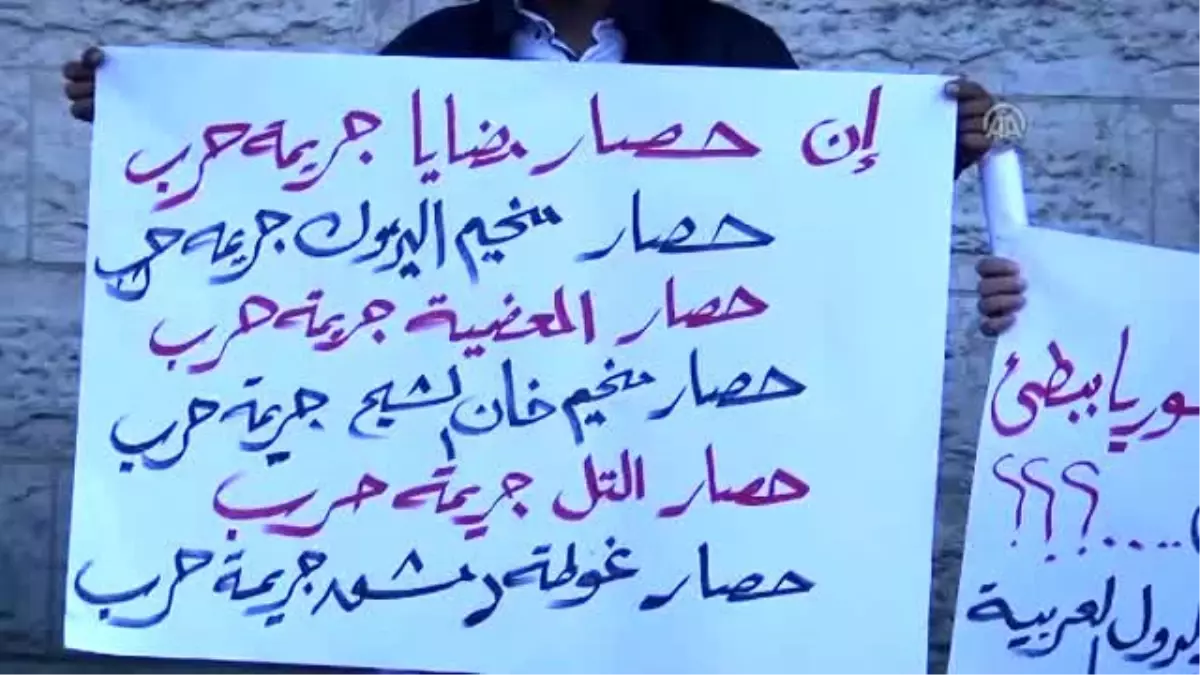 إن حصار مضايا جريمة حرب
حصار مخيم اليرموك جريمة حرب
حصار المعضمية جريمة حرب
حصار مخيم خان الشيح جريمة حرب
حصار التل جريمة حرب
حصار غوطة دمشق جريمة حرب
وريا ببطئ
....؟؟؟
الدول العربية